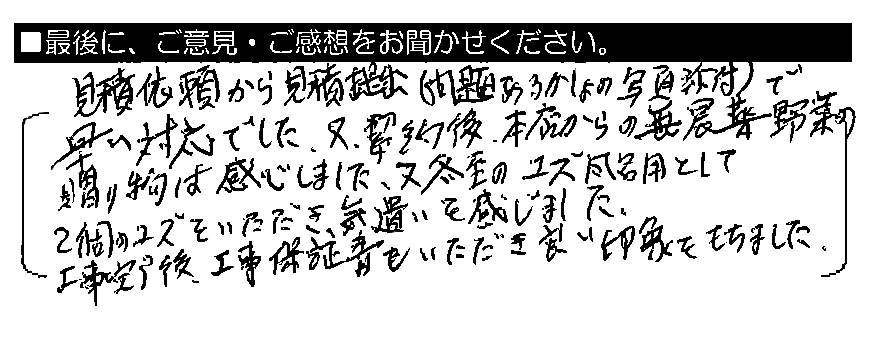 ■最後に、ご意見・ご感想をお聞かせください。
見積依頼から見積提出(問題あるかしょの写真添付)で
早い対応でした。又、契約後、本店からの無農薬野菜の
贈り物は感じしました、又冬至のユズ風呂用として
2個のユズをいただき、気遣いを感じました。
工事完了後、工事保証書もいただき良い印象をもちました。